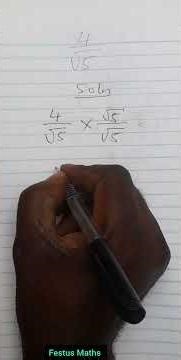 4/√5
Soln
4/√5 × √5/√5 =
Festus Maths